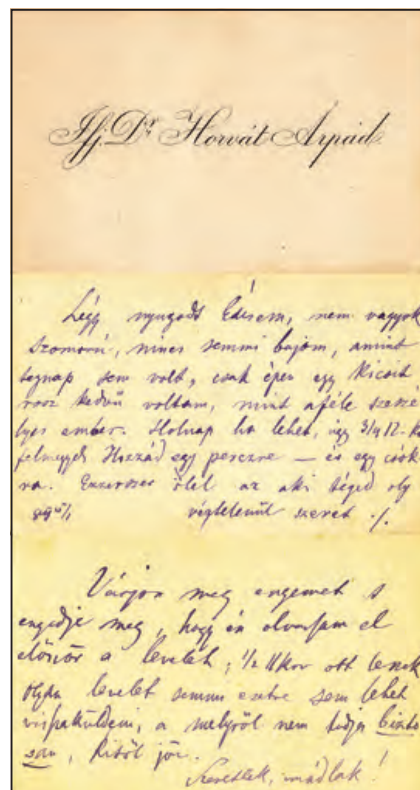 Iffj. Dr. Horvát Árpád
Légy nyugodt Édesem, nem vagyok
szomorú, nincs semmi bajom, amint
tegnap sem volt, csak épen egy kicsit
rosz kedvű voltam, mint aféle szesze
lyes ember. Holnap ha lehet, úgy 3/4 12. k
felmegyek Hozzád egy perczre — és egy csók
ra. Ezerszer ölel az aki téged oly
végtelenül szeret
Várjon meg engemet s
engedje meg, hogy én olvassam el
először a levelet; 1/2 11 kor ott leszek
olyan levelet semmi esetre sem lehet
visszaküldeni, a melyről nem tudja bizto
san, kitől jön.
Szeretlek, imádlak!